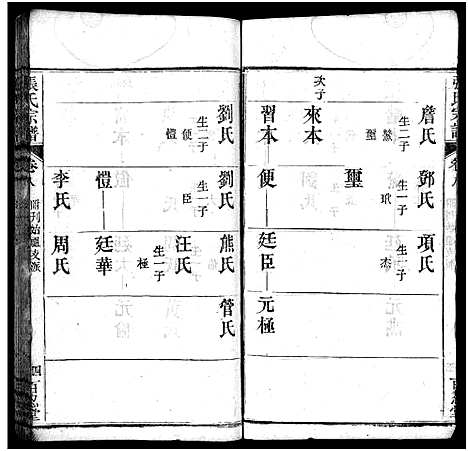 詹氏
生二子
鰲
璽
次子
來本
習本
劉氏
生二子
便
愷
鄧氏
生一子
玳
璽
便
劉氏
生一子
臣
愷
李氏
項氏
生一子
杰
廷臣
熊氏
汪氏
生一子
極
廷華
周氏
元極
管氏
張氏宗譜
卷八
四
百忍堂